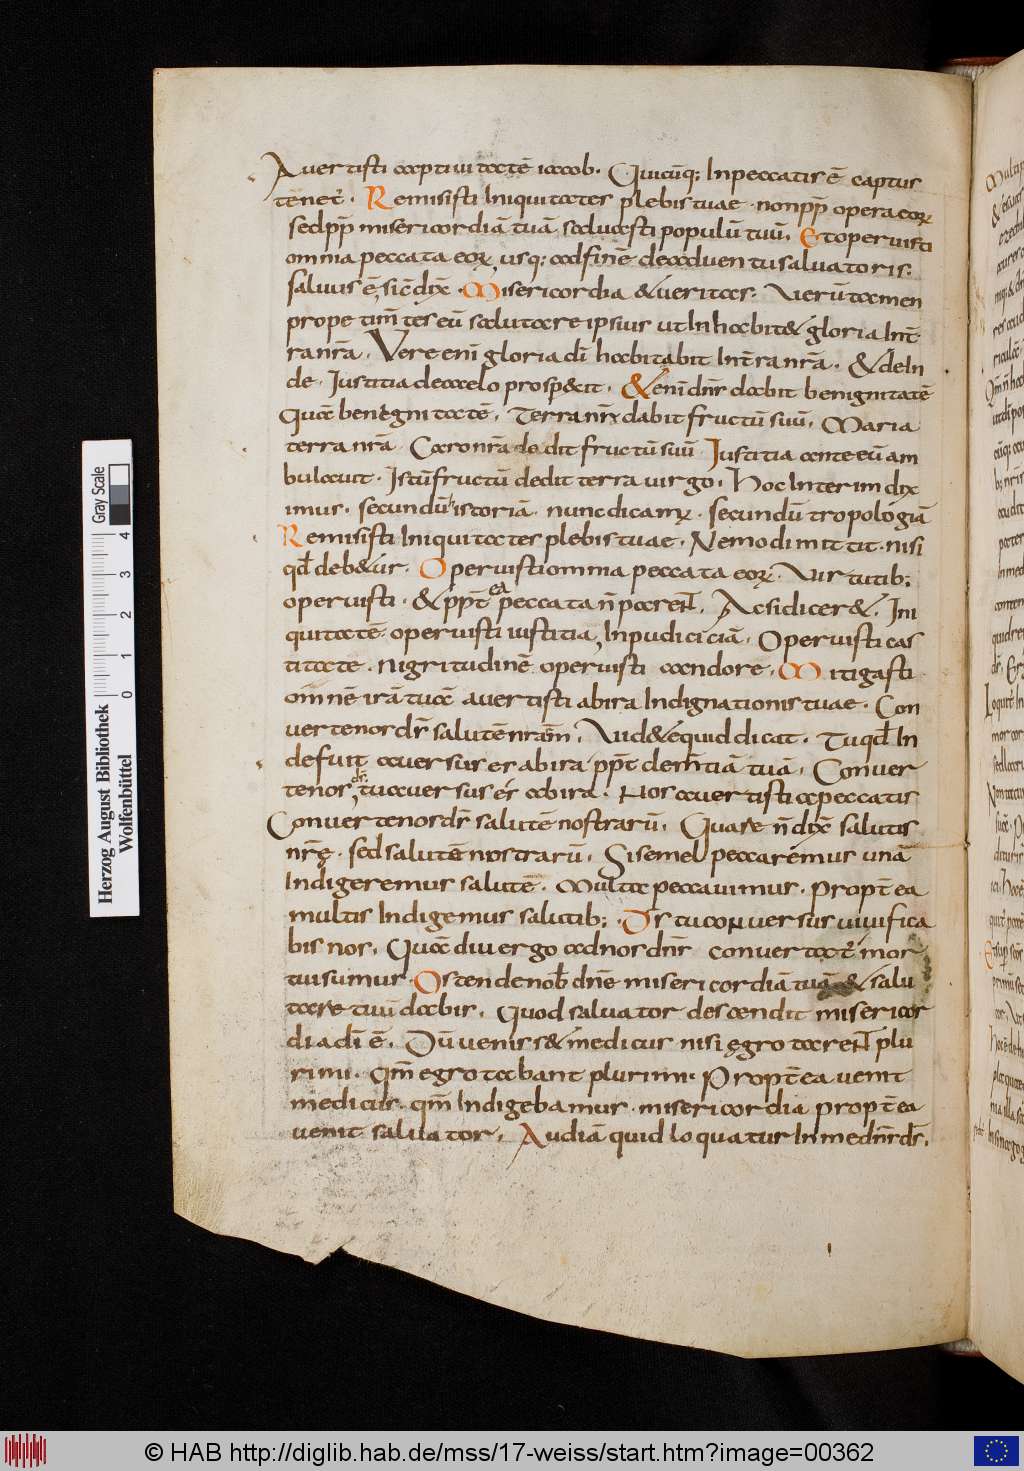 Auertisti captiuitatē iacob. Quicūq; Inpeccatis ē captus
tenet᷑. Remisisti Iniquitates plebis tuae. non pp̄ opera eoꝝ
sed pp̄ misericordiā tuā. saluasti populū tuū. Et operuisti
omnia peccata eoꝝ, usq; ad finē deaduentu saluatoris:
saluus ē, sic̄ dix̄. Misericordia & ueritas. Uerūtamen
prope tim̄tes eū salutare ipsius ut Inhabit& gloria Int̄
ra nr̄a. Vere eni gloria dī habitabit Int̄ra nr̄a. & deIn
de. Iustitia decaelo prosp&it. & eni dn̄s dabit benignitatē
Quae benegnitatē. Terra nr̄a dabit fructū suū. Maria
terra nr̄a. Caro nr̄a dedit fructū suū. Iustitia ante eū am
bulauit. Istū fructū dedit terra uirgo. Hoc Interim dix
imus. secundū istoriā. nunc dicamꝰ. secundū tropologiā
Remisisti Iniquitates plebis tuae. Nemo dimittit. nisi
qd̄ deb&ur. Operuisti omnia peccata eoꝝ. Uirtutib;
operuisti. & ppt̄ ea peccata n̄ parent. Ac si dicer&. Ini
quitatē operuisti iustitia, Inpudiciciā. Operuisti cas
titate. nigritudinē operuisti candore. Mitigasti
omnē irā tuā auertisti ab ira Indignationis tuae. Con
uerte nos ds̄ salutē nrām. Uid& equid dicat. Tu qd̄ In
defuit auersus es ab ira ppt̄ clem̄tiā tuā. Conuer
te nos ds̄, tu auersus es ab ira. Nos auertisti a peccatis
Conuerte nos ds̄ salutē nostrarū. Quare n̄ dix̄ salutis
nr̄ę. sed salutē nostrarū. Si semel peccaremus unā
Indigeremus salutē. Multa peccauimus. propt̄ea
multis Indigemus salutib;. Ds̄ tu conuersus uiuifica
bis nos. Quae diu ergo ad nos dn̄s conuertat᷑ mor
tui sumus. Ostende nob̄ dnē misericordiā tuā & salu
tare tuū dabis. Quod saluator descendit misericor
dia dī ē. Dū uenis& medicus nisi ęgrotarent plu
rimi. qm̄ egrotabant plurimi. Propt̄ea uenit
medicus. qm̄ Indigebamus. misericordia propt̄ea
uenit saluator. Audiā quid loquatur In me dn̄s ds̄.
Herzog August Bibliothek
Wolfenbüttel
0 1 2 3 4
Gray Scale
© HAB http://diglib.hab.de/mss/17-weiss/start.htm?image=00362